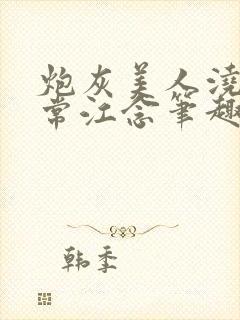 炮灰美人浇
常江念笔趣
韩季